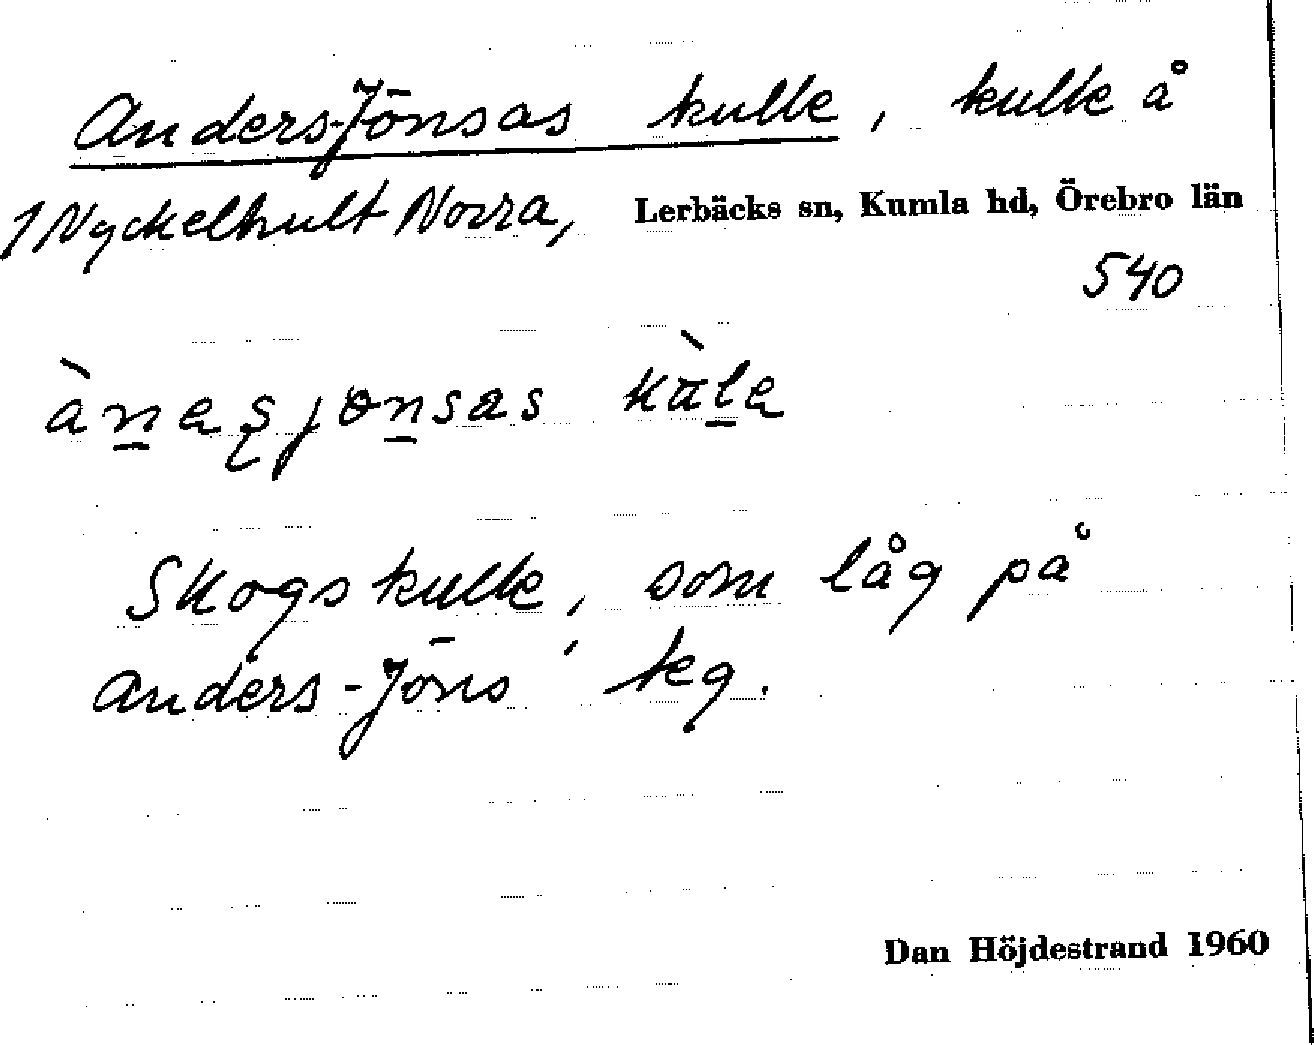 Anders-Jönsas kulle, kulle å
1 Nyckelhult Norra, Lerbäcks sn, Kumla hd, Örebro län
540
Skogskulle, som låg på
Anders-Jöns' teg.
Dan Höjdestrand 1960